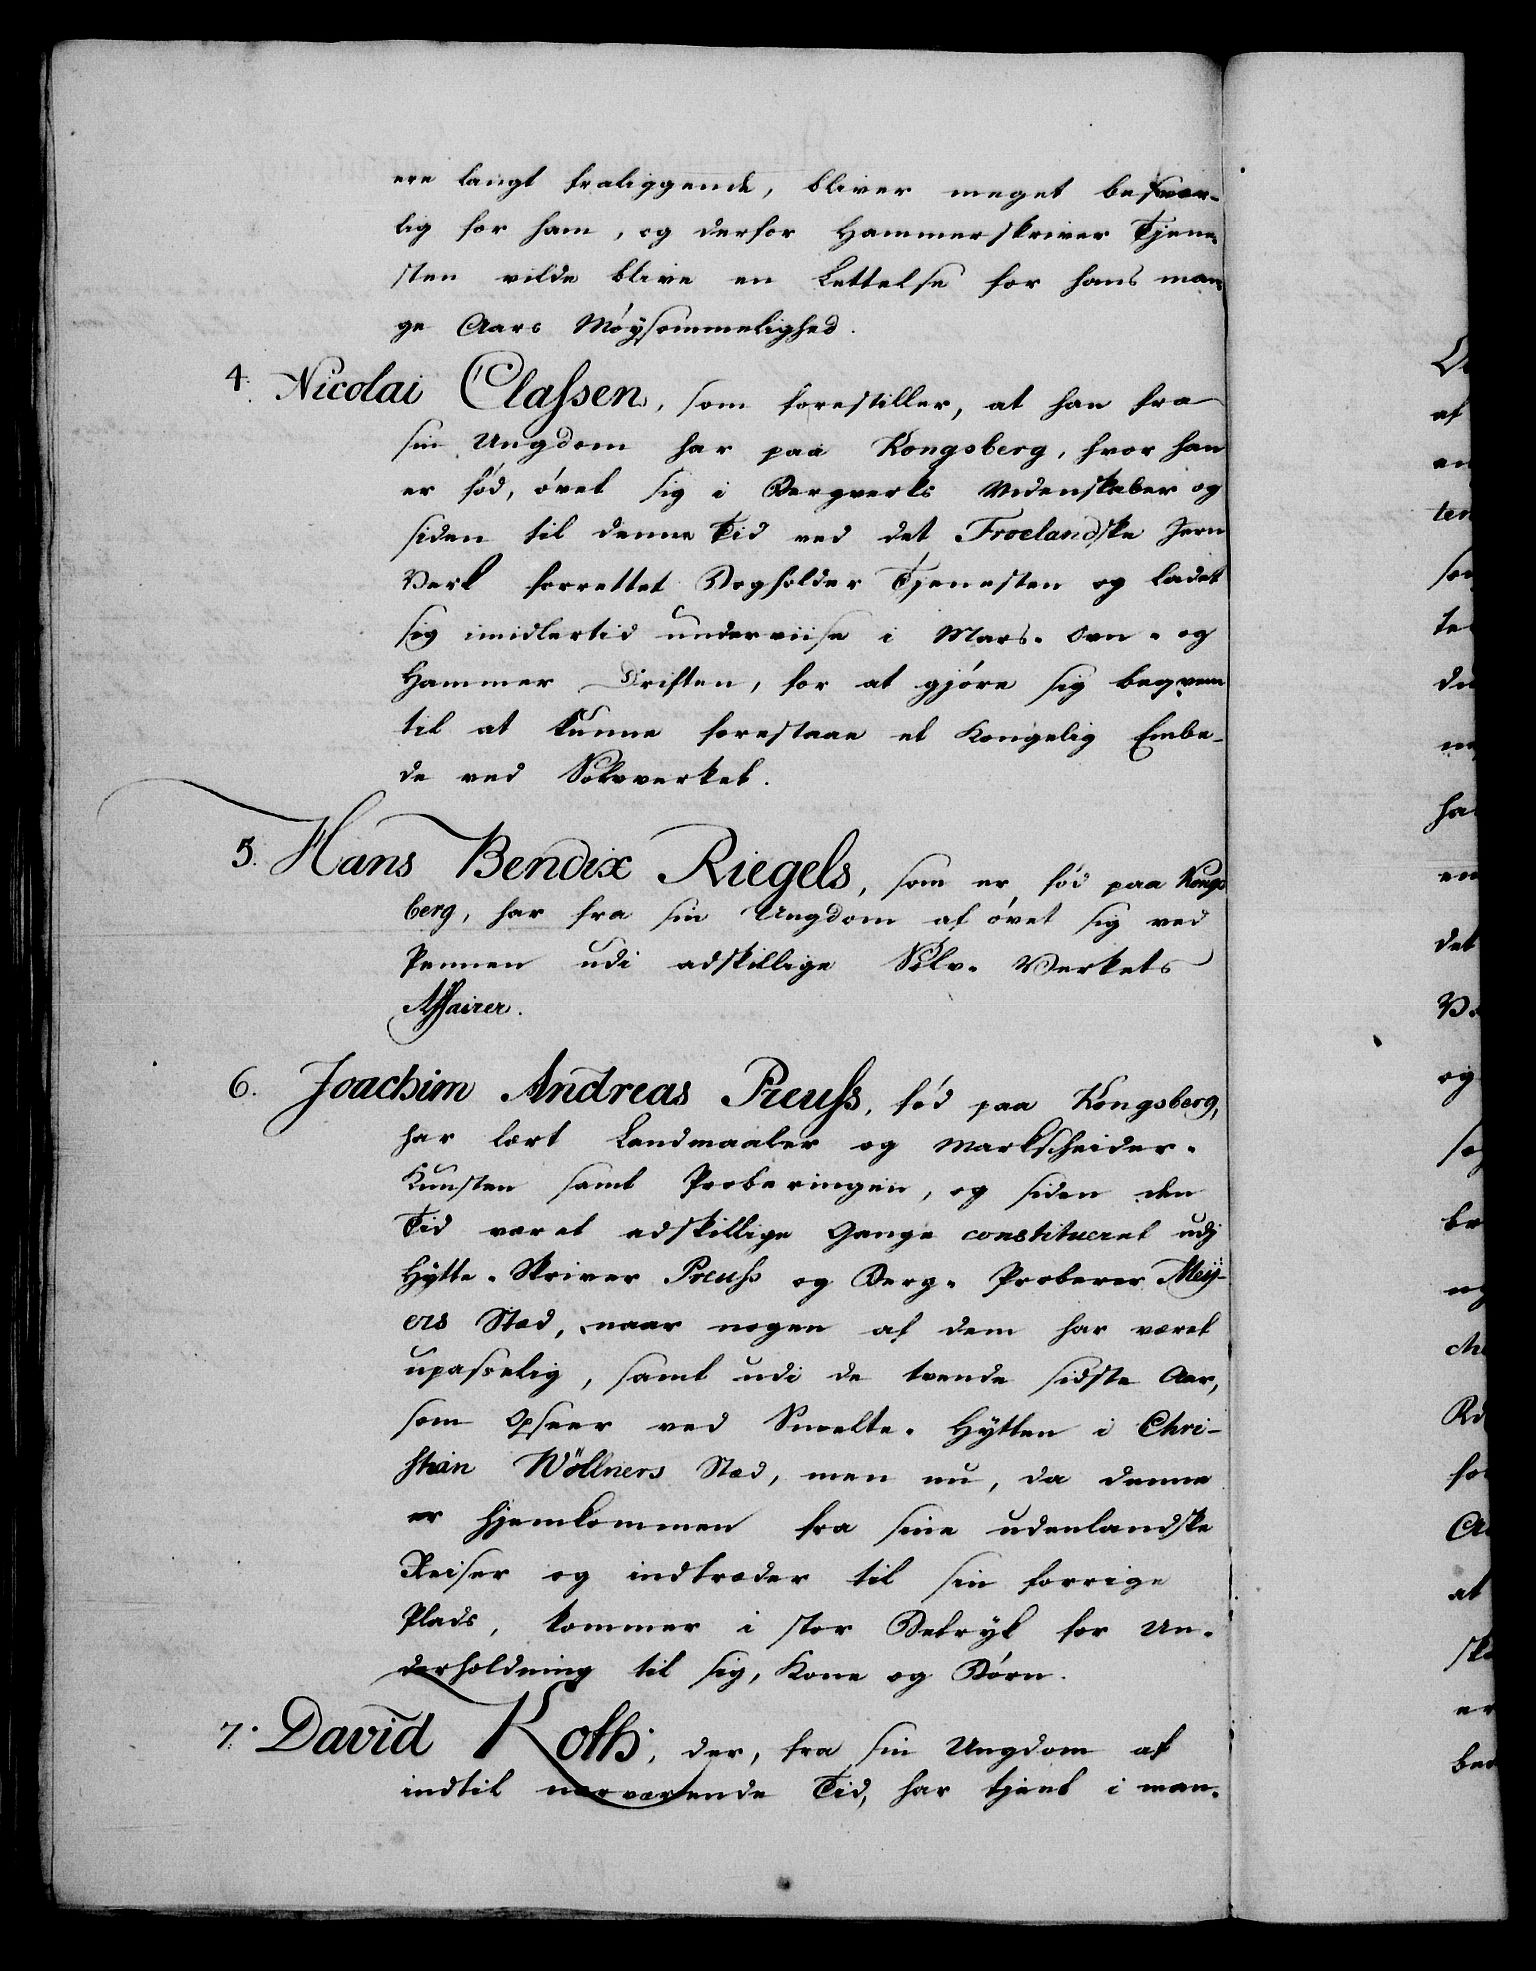 ere langt fraliggende, bliver meget besvær-
lig for ham, og derfor Hammerskriver Tjene-
sten vilde blive en Lettelse for hans man-
ge Aars Møysommelighed.
4. Nicolai Classen, som forestiller, at han fra
sin Ungdom har paa Kongsberg, hvor han
er fød, øvet sig i Bergverks Videnskaber og
siden til denne Tid ved det Froelandske Jern
Verk forrettet Bogholder Tjenesten og ladet
sig imidlertid underviise i Mars-Ovn- og
Hammer Driften, for at gjøre sig beqvem
til at kunne forestaae et Kongelig Embe-
de ved Sølvverket.
5. Hans Bendix Riegels, som er fød paa Kongs
berg, har fra sin Ungdom af øvet sig ved
Pennen udi adskillige Sølv-Verkets
Affairer.
6. Joachim Andreas Preuss, fød paa Kongsberg,
har lært Landmaaler og Markscheider-
Kunsten samt Proberingen, og siden den
Tid været adskillige Gange constitueret udj
Hytte-Skriver Preuss og Berg-Proberer Meÿ-
ers Stæd, naar nogen af dem har været
upasselig, samt udi de tvende sidste Aar,
som Opseer ved Smelte-Hytten i Chri-
stian Wöllners Stæd, men nu, da denne
er hjemkommen fra sine udenlandske
Reiser og indtræder til sin forrige
Plads, kommer i stor Betryk for Un-
derholdning til sig, Kone og Børn.
7. David Roth, der, fra sin Ungdom af
indtil nærværende Tid, har tjent i man-
af
det
og
at